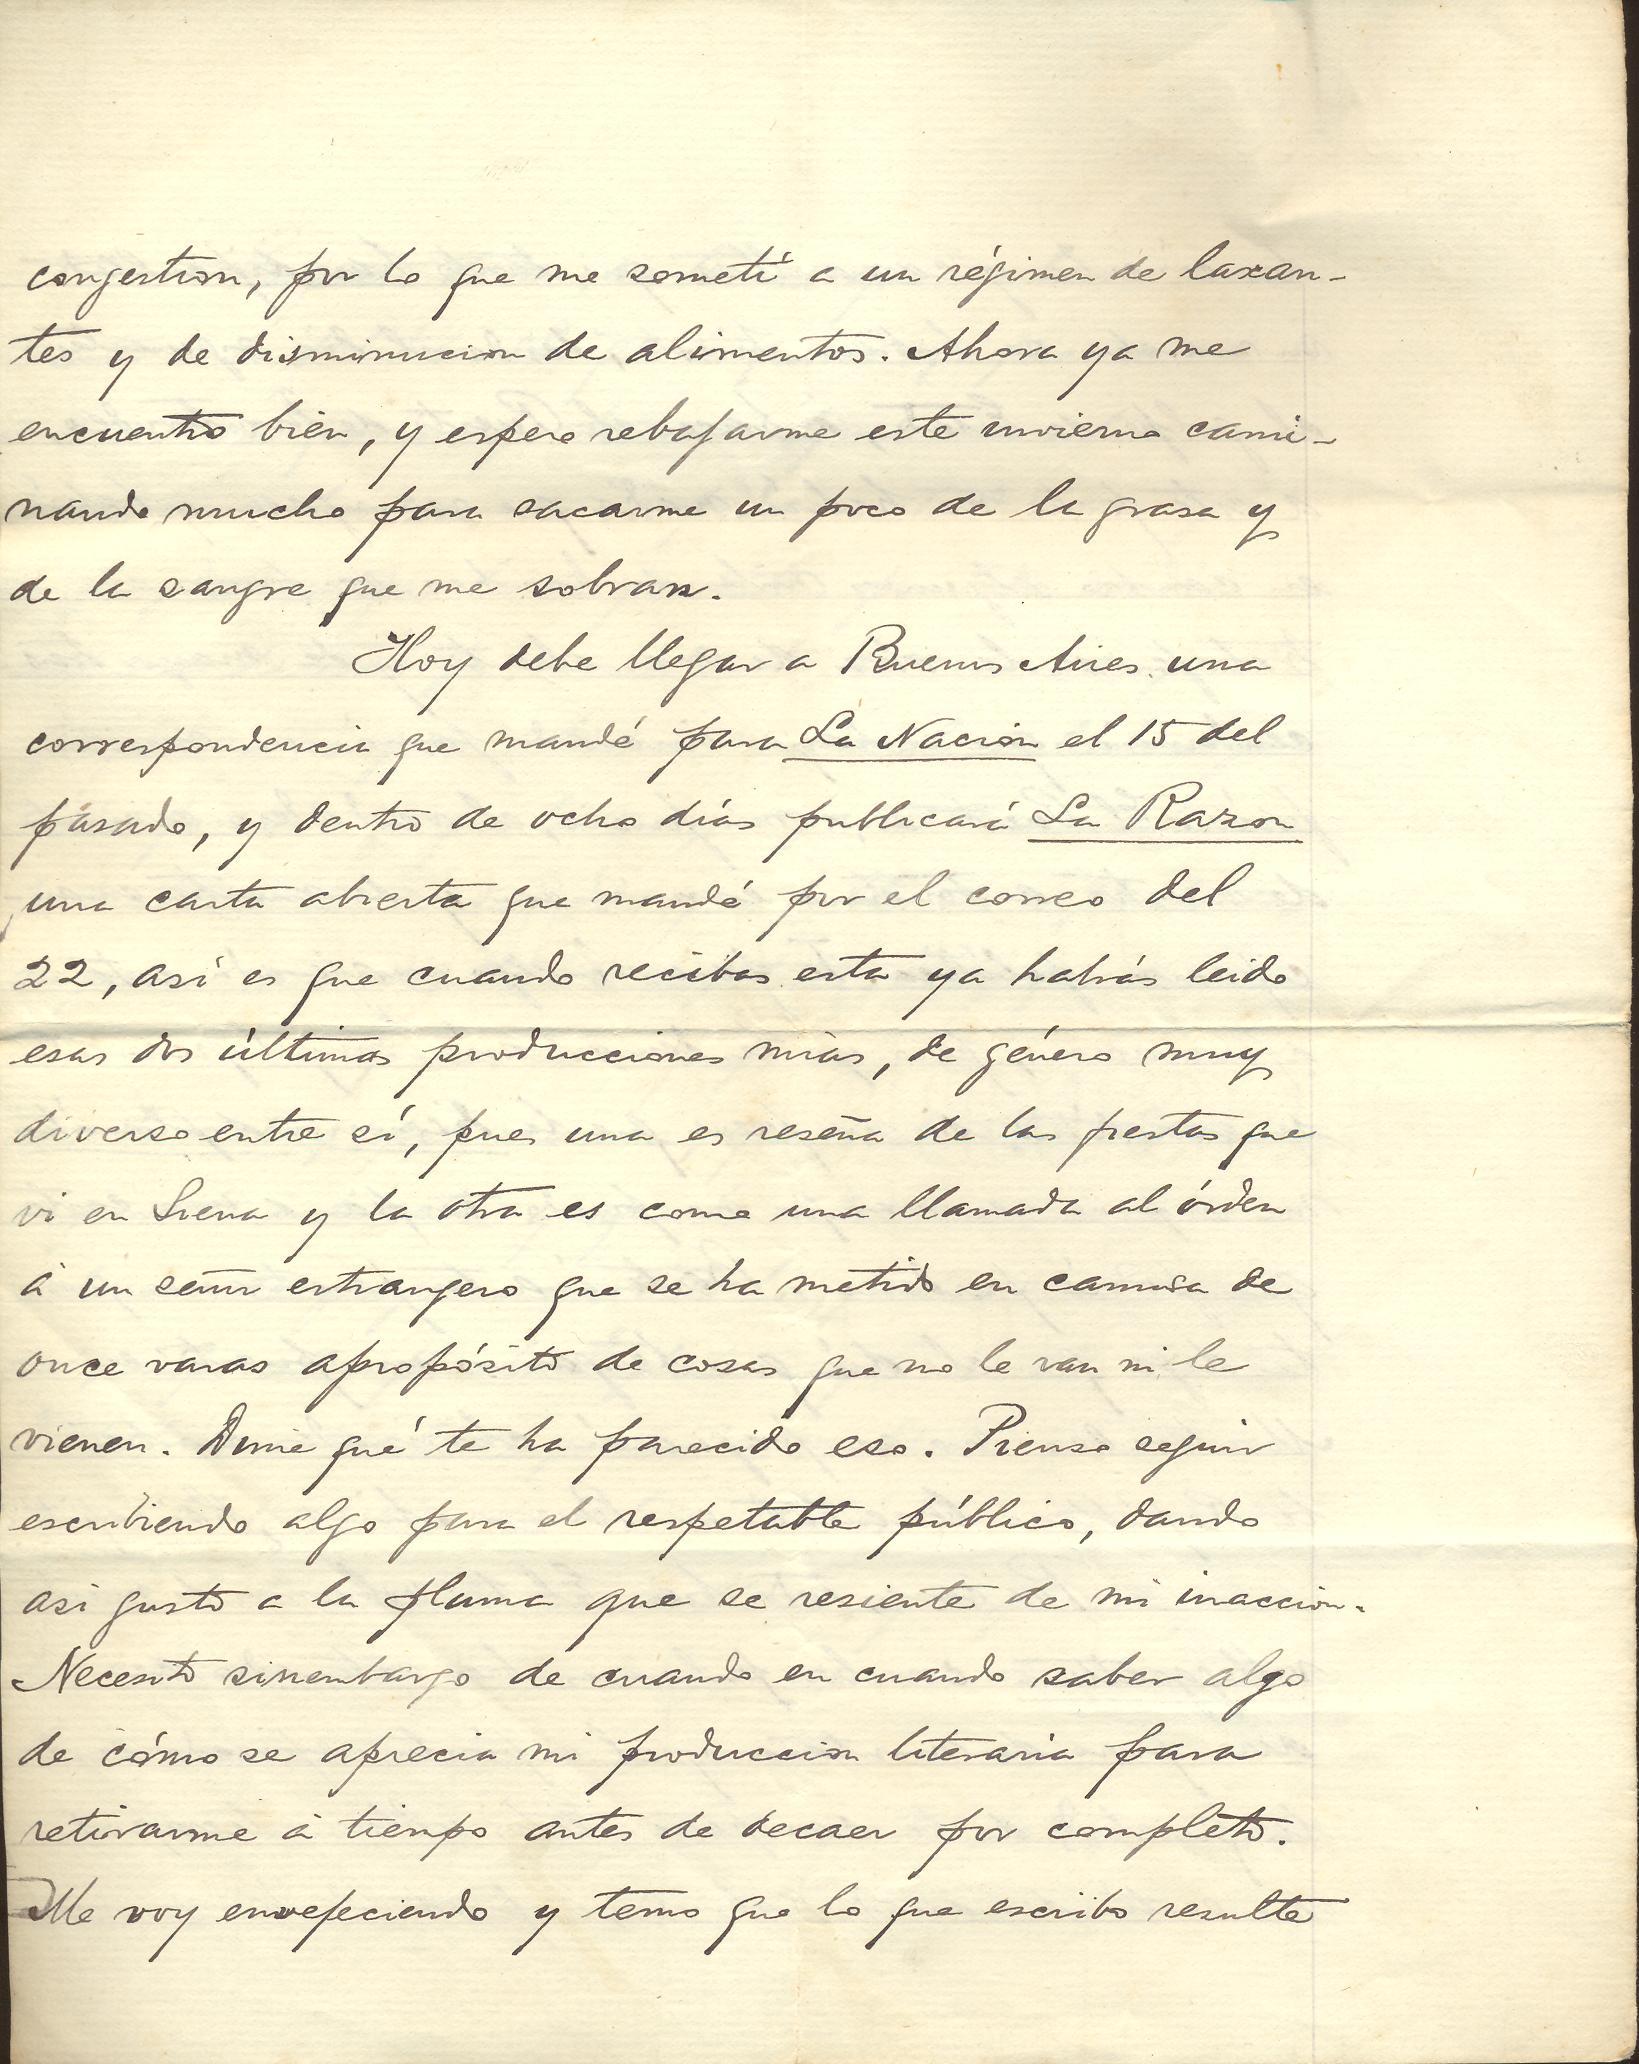 congestion, por lo que me someti a un régimen de laxan-
tes y de disminucion de alimentos. Ahora ya me
encuentro bien, y espero rebajarme este invierno cami-
nando mucho para sacarme un poco de la grasa y
de la sangre que me sobran.
Hoy debe llegar a Buenos Aires una
correspondencia que mandé para La Nacion el 15 del
pasado, y dentro de ocho dias publicará La Razon
una carta abierta que mandé por el correo del
22, asi es que cuando recibas esta ya habrás leido
esas dos últimas producciones mias, de género muy
diverso entre sí, pues una es reseña de las fiestas que
vi en Siena y la otra es como una llamada al órden
á un señor estrangero que se ha metido en camisa de
once varas apropósito de cosas que no le van ni le
vienen. Dime qué te ha parecido eso. Pienso seguir
escribiendo algo para el respetable público, dando
asi gusto a la pluma que se resiente de mi inaccion.
Necesito sinembargo de cuando en cuando saber algo
de cómo se aprecia mi produccion literaria para
retirarme á tiempo antes de decaer por completo.
Me voy envejeciendo y temo que lo que escribo resulte